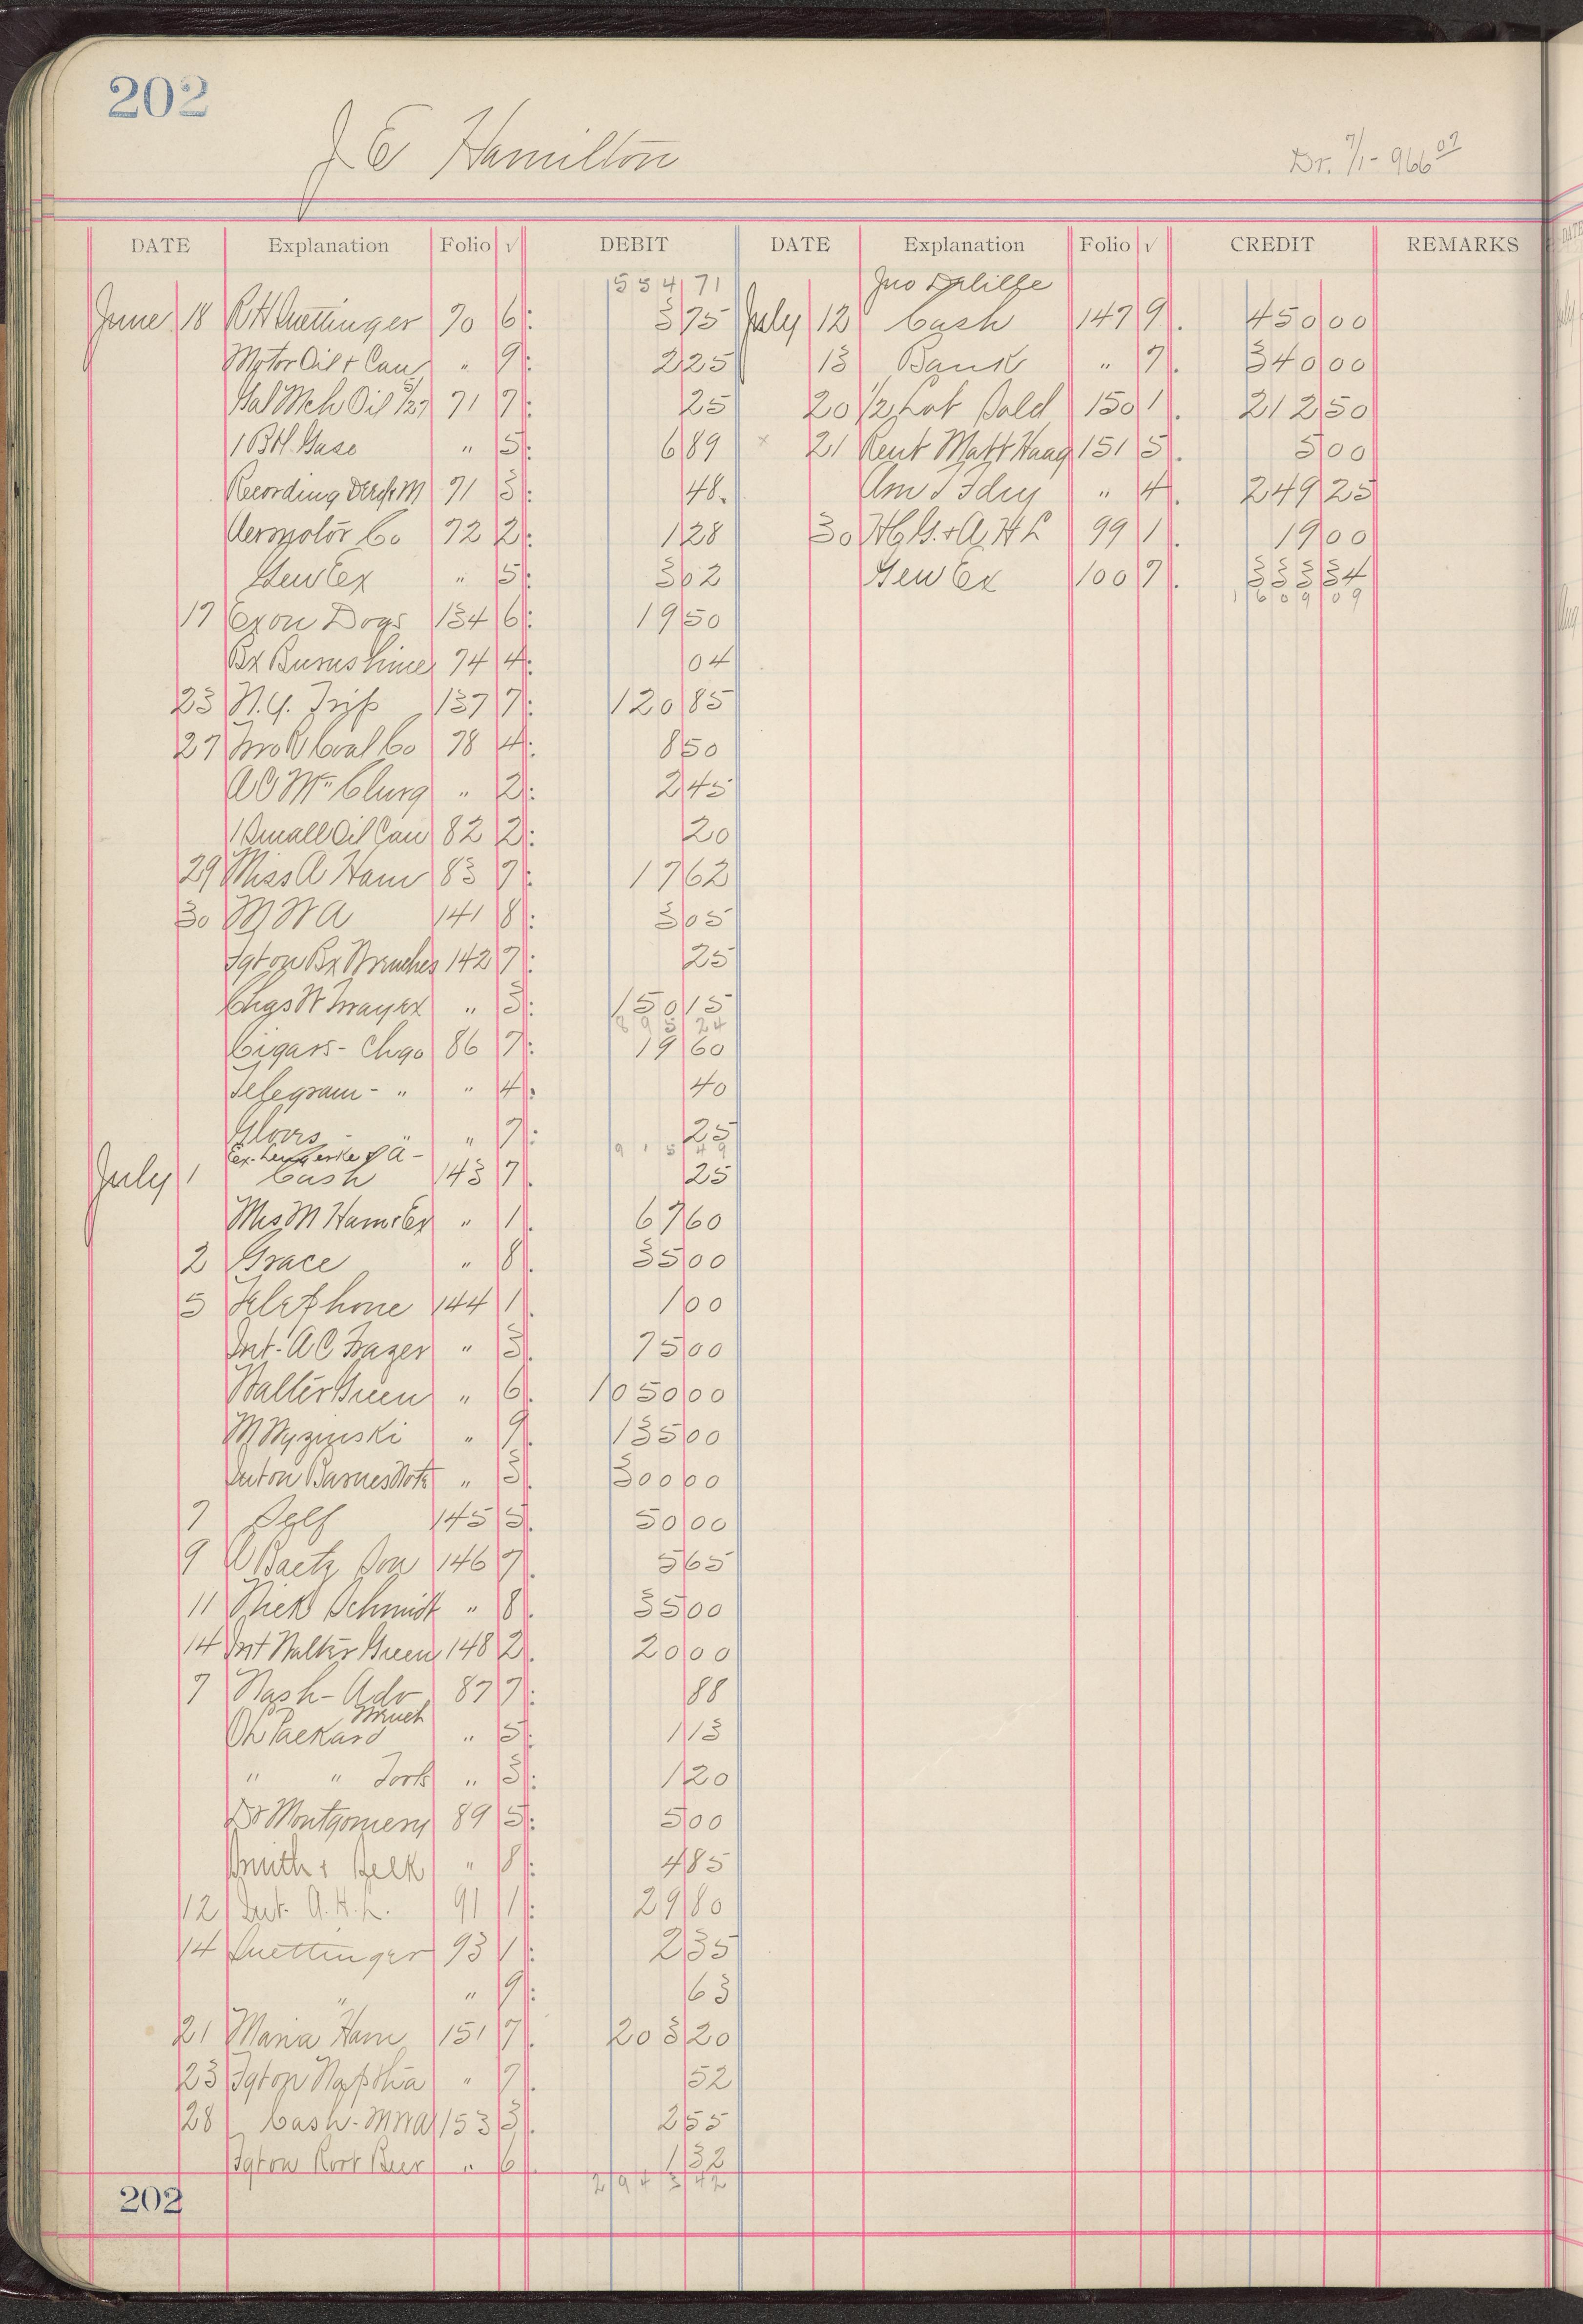 202
J E Hamilton
Dr. 7/1 - 966 07
DATE Explanation Folio √ DEBIT DATE Explanation Folio √ CREDIT REMARKS
534 71
June 18 R H Luettinger 70 6: 3 75
Motor Oil + Can " 9: 2 25
Gal Mch Oil 5/27 71 7: 25
1 Bbl. Gaso " 5: 6 89
Recording 71 3: 48
Aermotor Co 72 2: 1 28
Gen Ex " 5: 3 02
17 Ex on Dogs 134 6: 19 50
Bx Burnishine 74 4: 04
23 N.Y. Trip 137 7: 120 85
27 Coal Co 78 4: 8 50
A C McClurg " 2: 2 45
1 Small Oil Can 82 2: 20
29 Miss A Ham 83 7: 17 62
30 M W A 141 8: 3 05
Fgt on Bx Wrenches 142 7: 25
Chas W " 3: 150 15
895 24
Cigars - Chgo 86 7: 19 60
Telegram - " " 4: 40
Gloves - " " 7: 25
915 49
July 1 Cash 143 7. 25
Mrs M Ham Ex " 1. 67 60
2 Grace " 8. 35 00
5 Telephone 144 1. 1 00
Int - A C Frazer " 3. 75 00
Walter Green " 6. 1050 00
M Wyzinski " 9. 135 00
Int on Barnes Note " 3. 300 00
7 Self 145 5. 50 00
9 Baetz Son 146 7. 5 65
11 Nick Schmidt " 8. 35 00
14 Int Walter Green 148 2. 20 00
7 Nash - Adv 87 7: 88
Oh Packard Wrench " 5: 1 13
" " Tools " 3: 1 20
Dr Montgomery 89 5: 5 00
Smith + Beck " 8: 4 85
12 Int. A. H. L. 91 1: 29 80
14 Luettinger 93 1: 2 35
" " 9: 63
21 Maria Ham 151 7. 203 20
23 Fgt on Naptha " 7. 52
28 Cash - MWA 153 3. 2 55
Fgt on Root Beer " 6. 1 32
2943 42
Jno
July 12 Cash 147 9. 450 00
13 Bank " 7. 340 00
20 1/2 Lot Sold 150 1. 212 50
x 21 Rent Matt Haag 151 5. 5 00
Am T Fdry " 4. 249 25
30 H C G. + A H L 99 1. 19 00
Gen Ex 100 7. 333 34
1609 09
202